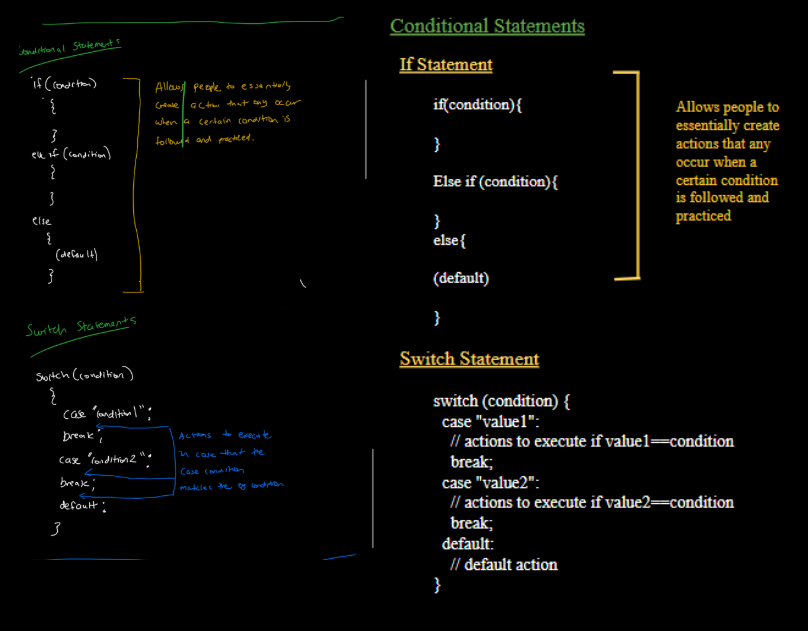 Conditional Statements
if (condition)
{
}
else if (condition)
{
}
else
{
(default)
}
Allows people to essentially
create action that any occur
when a certain condition is
followed and practiced.
Switch Statements
Switch (condition)
{
case "condition1":
break;
case "condition2":
break;
default:
}
Actions to execute
in case that the
case condition
matches the condition
Conditional Statements
If Statement
if(condition){
}
Else if (condition){
}
else{
(default)
}
Allows people to
essentially create
actions that any
occur when a
certain condition
is followed and
practiced
Switch Statement
switch (condition) {
case "value1":
// actions to execute if value1==condition
break;
case "value2":
// actions to execute if value2==condition
break;
default:
// default action
}